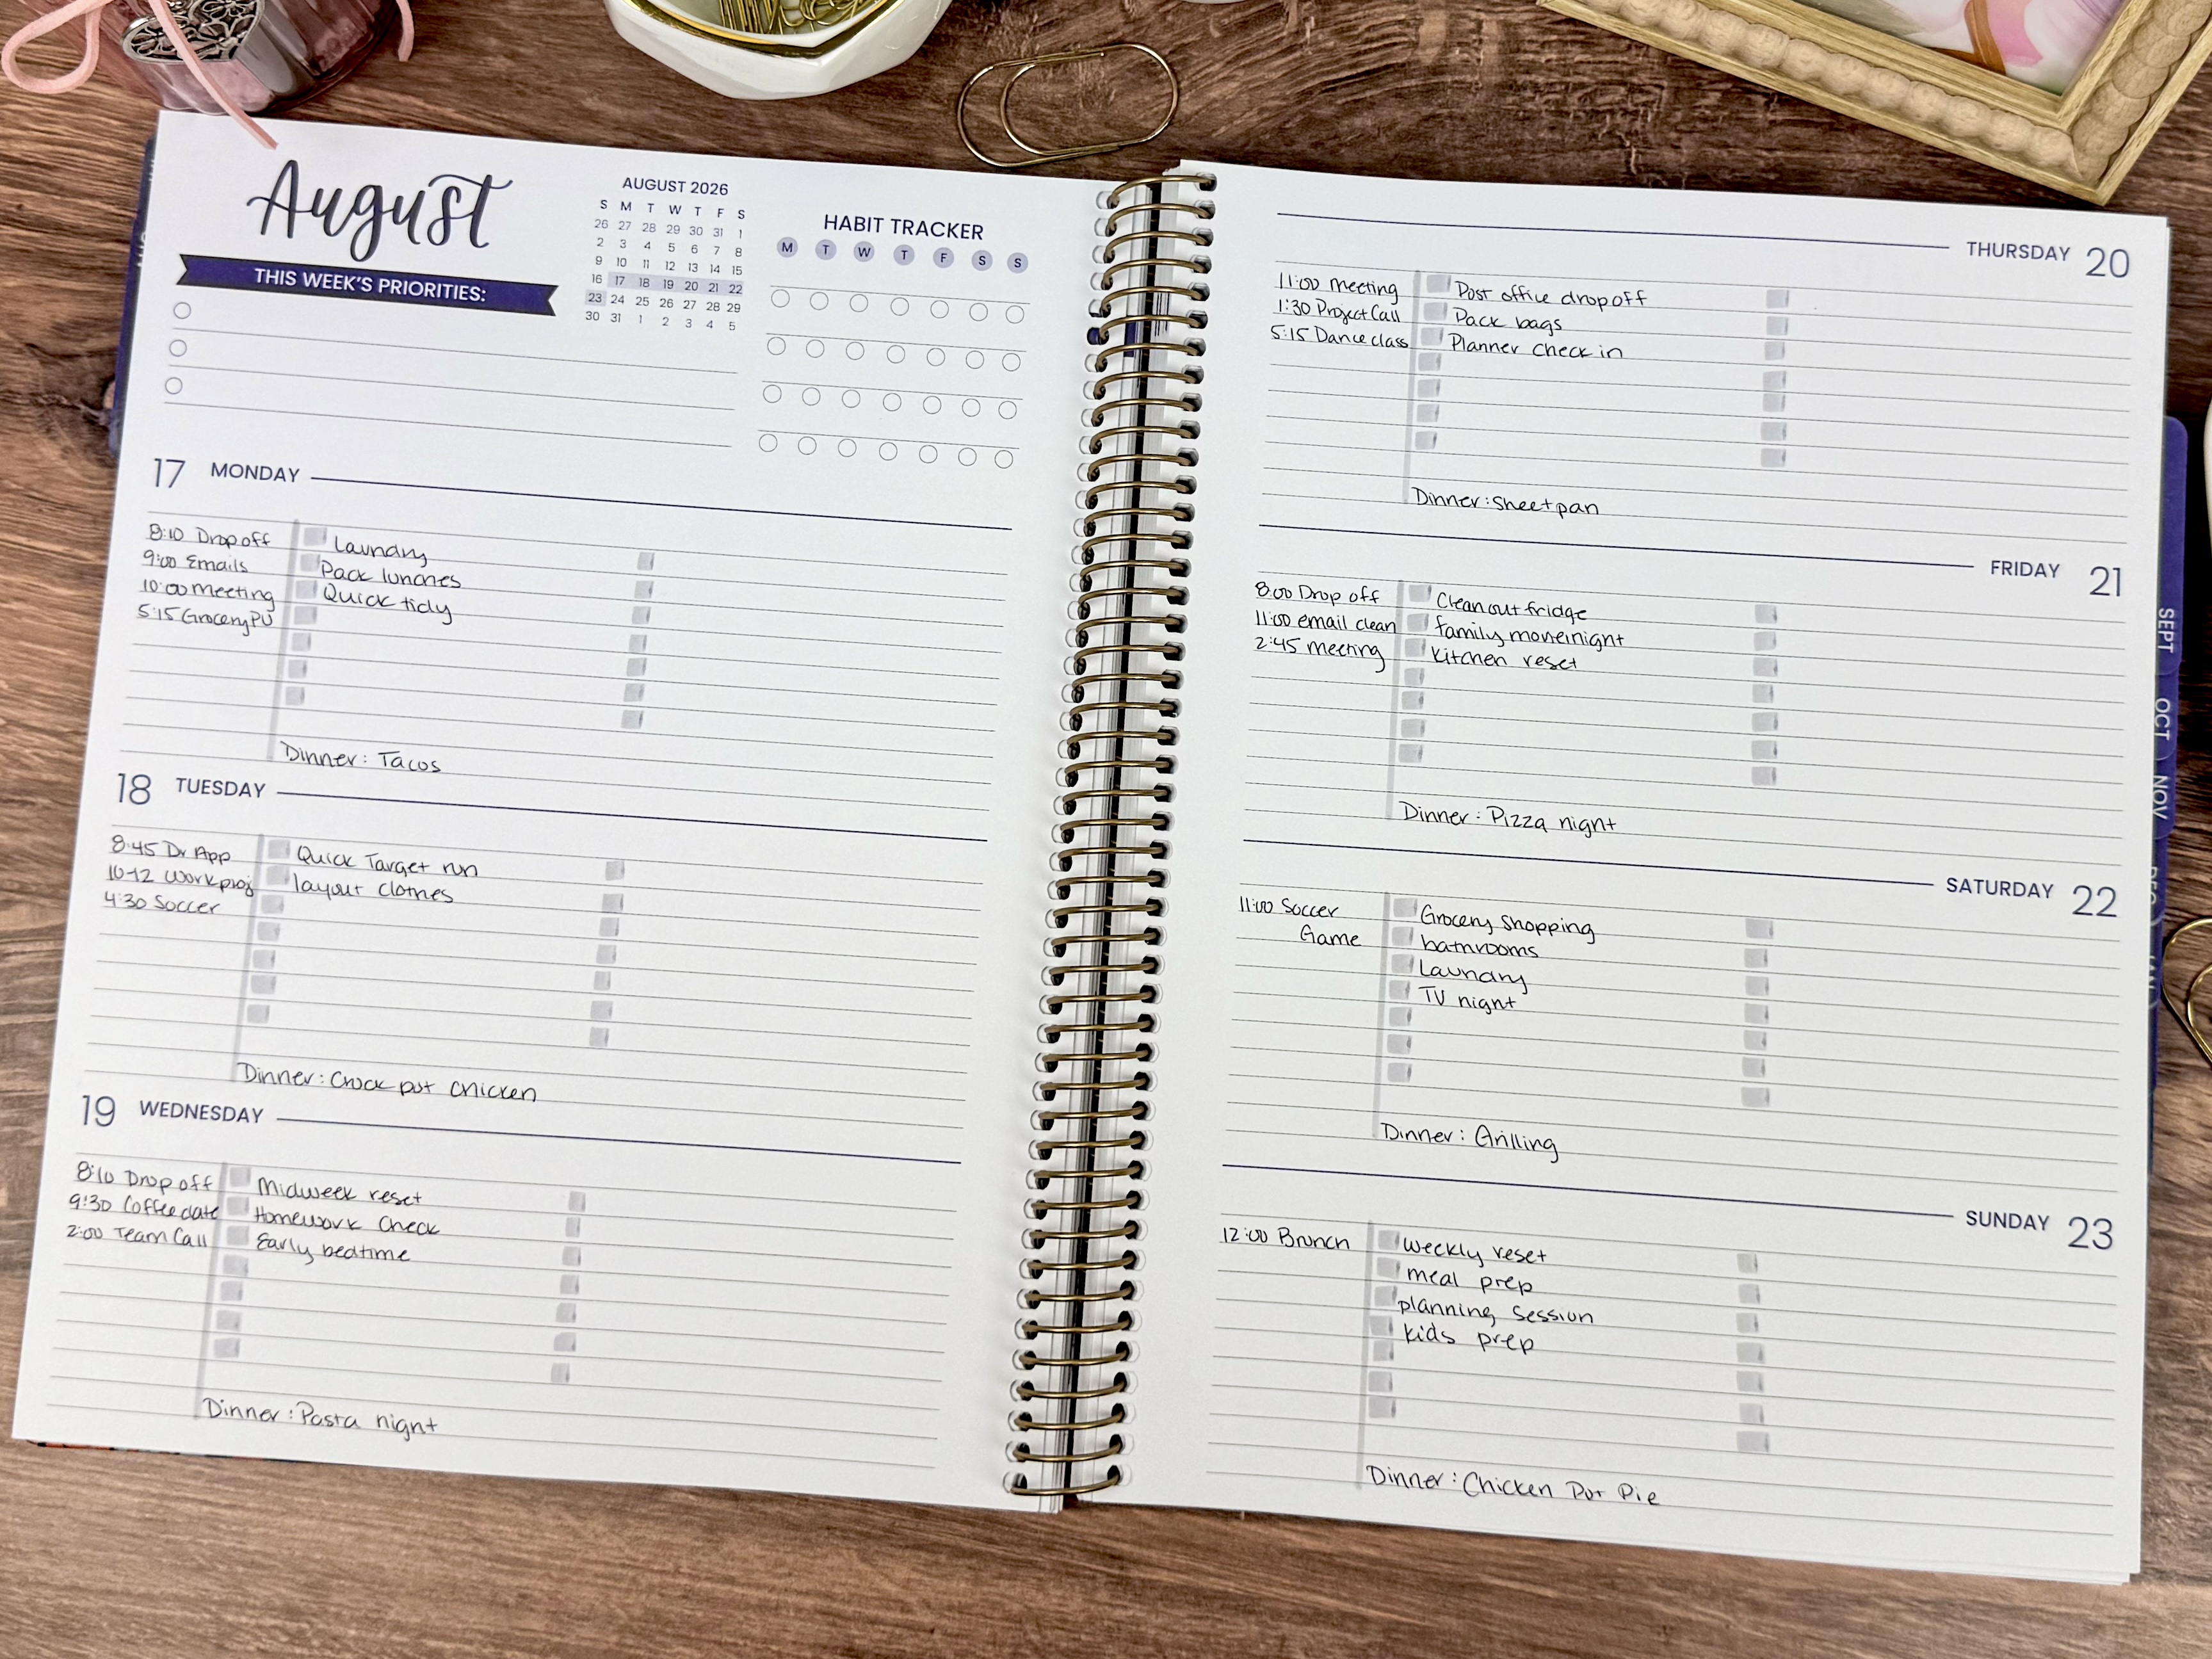 August
THIS WEEK'S PRIORITIES:
AUGUST 2026
S M T W T F S
26 27 28 29 30 31 1
2 3 4 5 6 7 8
9 10 11 12 13 14 15
16 17 18 19 20 21 22
23 24 25 26 27 28 29
30 31 1 2 3 4 5
HABIT TRACKER
M T W T F S S
17 MONDAY
8:10 Drop off
9:00 Emails
10:00 meeting
5:15 Grocery PU
Laundry
Pack lunches
Quick tidy
Dinner: Tacos
18 TUESDAY
8:45 Dr App
10-12 Work proj
4:30 Soccer
Quick Target run
layout clothes
Dinner: Crock pot chicken
19 WEDNESDAY
8:10 Drop off
9:30 Coffee date
2:00 Team Call
Midweek reset
Homework Check
Early bedtime
Dinner: Pasta night
THURSDAY 20
11:00 meeting
1:30 Project Call
5:15 Dance class
Post office drop off
Pack bags
Planner Check in
Dinner: Sheet pan
FRIDAY 21
8:00 Drop off
11:00 email clean
2:45 meeting
Clean out fridge
family movie night
Kitchen reset
Dinner: Pizza night
SATURDAY 22
11:00 Soccer
Game
Grocery Shopping
bathrooms
Laundry
TV night
Dinner: Grilling
SUNDAY 23
12:00 Brunch
Weekly reset
meal prep
planning session
kids prep
Dinner: Chicken Pot Pie
SEPT
OCT
NOV